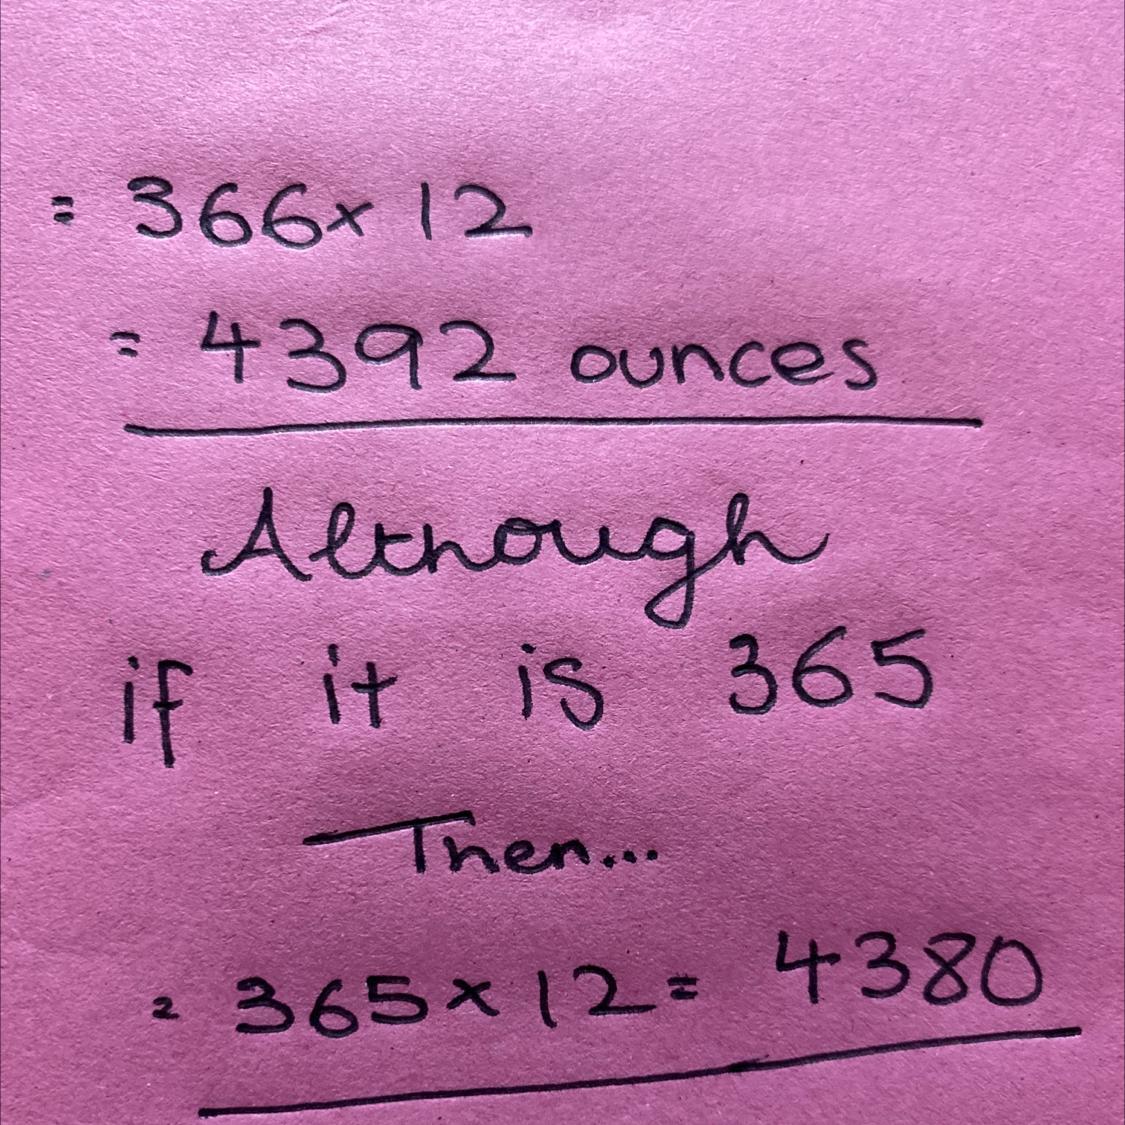 = 366x 12
= 4392 ounces
Although
if it is 365
Then...
= 365 x 12 = 4380